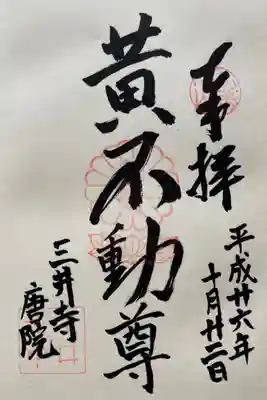 奉拝
平成廿六年
十月廿二日
黄不動尊
三井寺
唐院